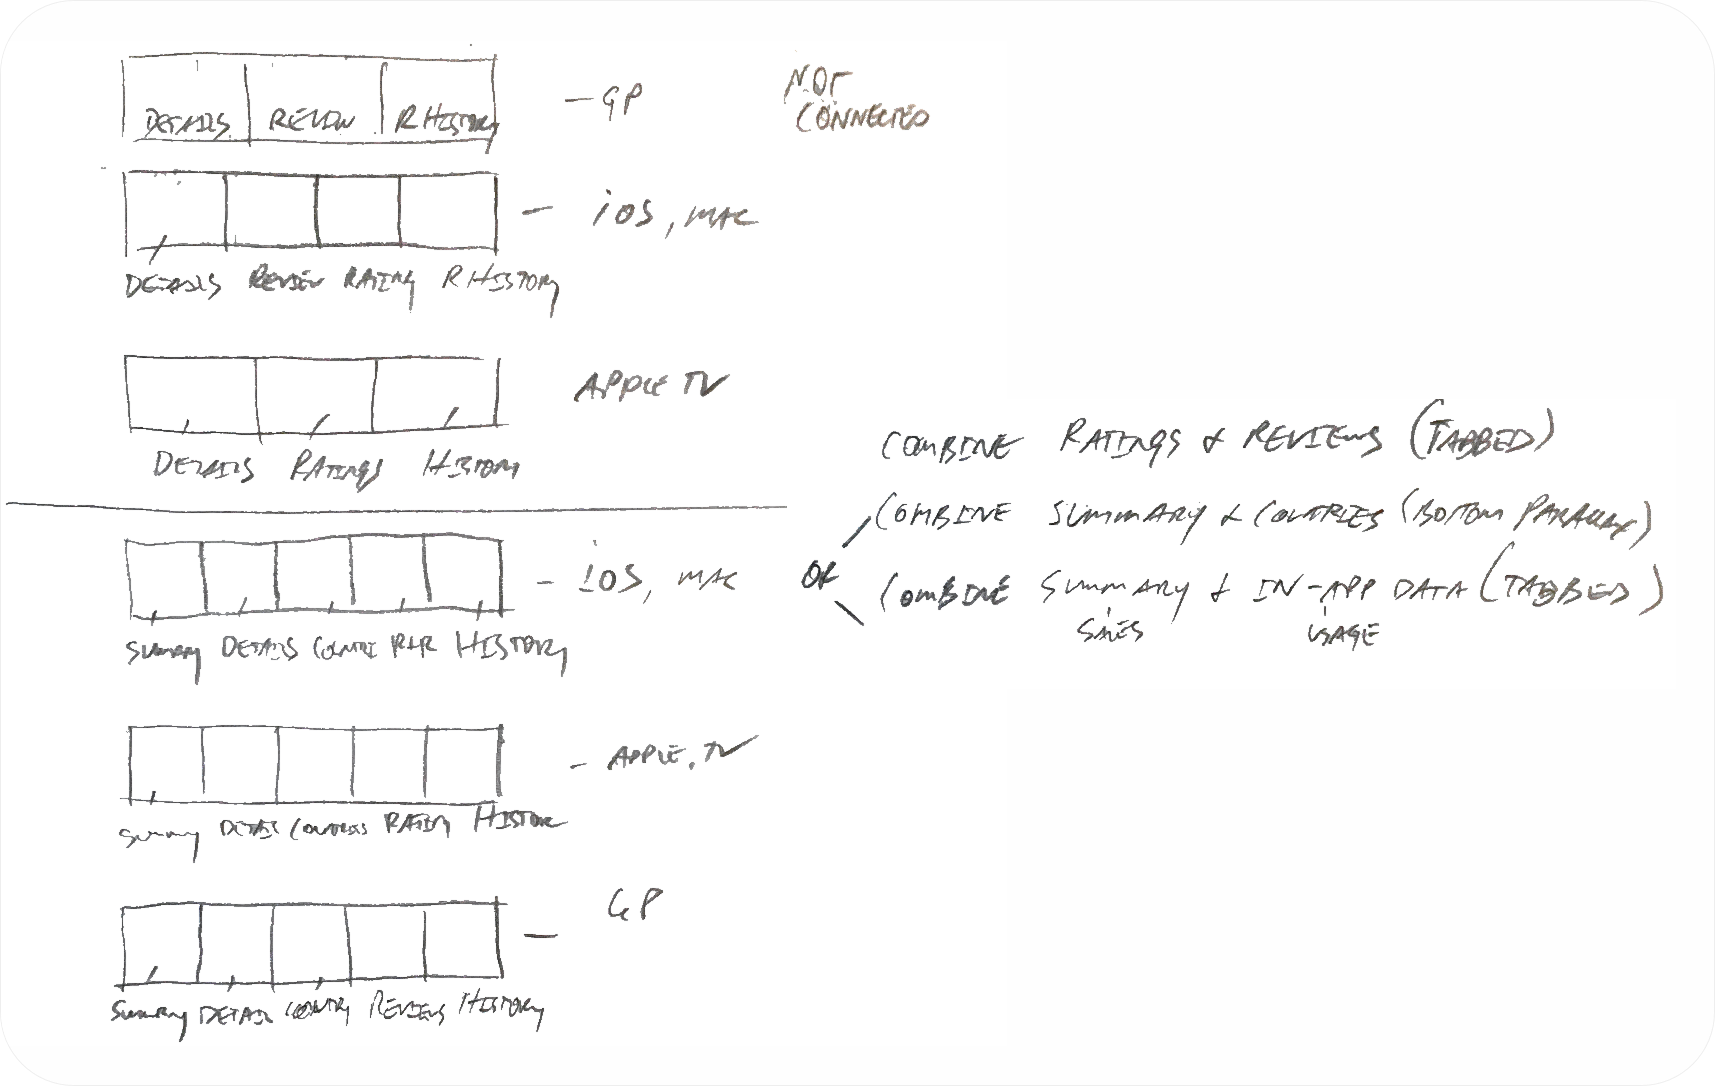 DETAILS REVIEW R HISTORY – GP
NOT
CONNECTED
– iOS, MAC
DETAILS REVIEW RATING R HISTORY
APPLE TV
DETAILS RATINGS HISTORY
COMBINE RATINGS & REVIEWS (TABBED)
COMBINE SUMMARY & COUNTRIES (BOTTOM PARALLAX)
OR
COMBINE SUMMARY & IN-APP DATA (TABBED)
SALES USAGE
– iOS, MAC
SUMMARY DETAILS COUNTRI R+R HISTORY
– APPLE TV
SUMMARY DETAILS COUNTRIES RATING HISTOR
– GP
SUMMARY DETAIL COUNTRY REVIEWS HISTORY